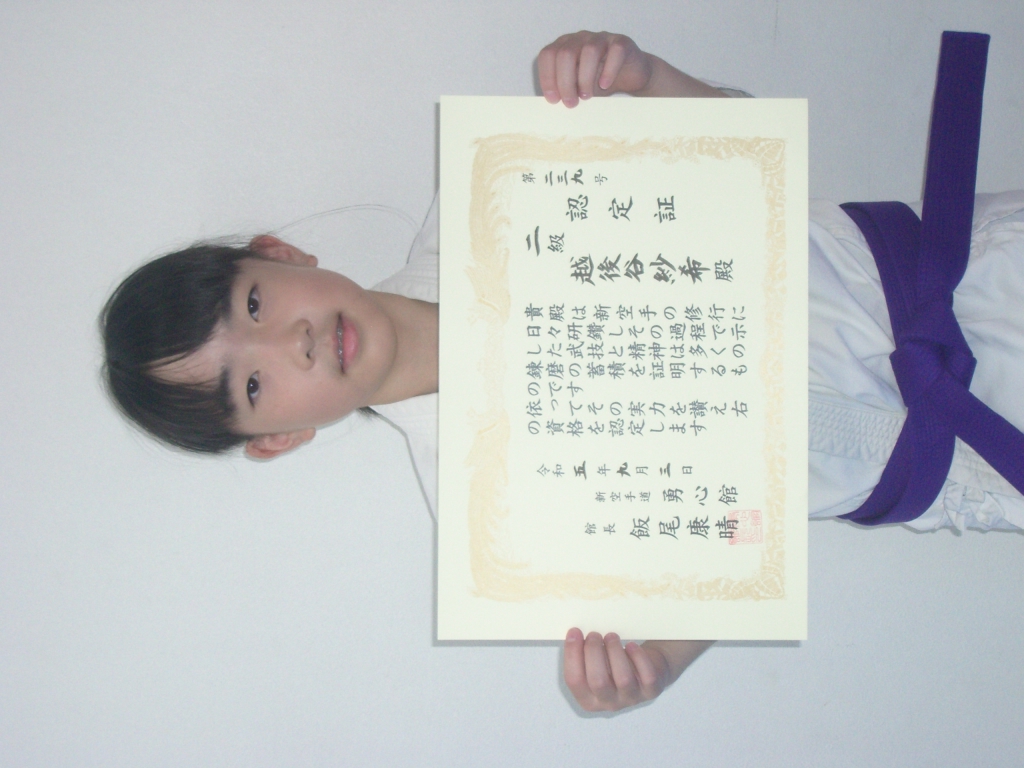 第二三九号
認定証
二級
越後谷紗希殿
貴殿は新空手の修行に
日々研鑽しその過程で示
した武技と精神は多くの
錬磨の蓄積を証明するも
のです
依ってその実力を讃え右
の資格を認定します
令和五年九月三日
新空手道 勇心館
館長 飯尾康晴